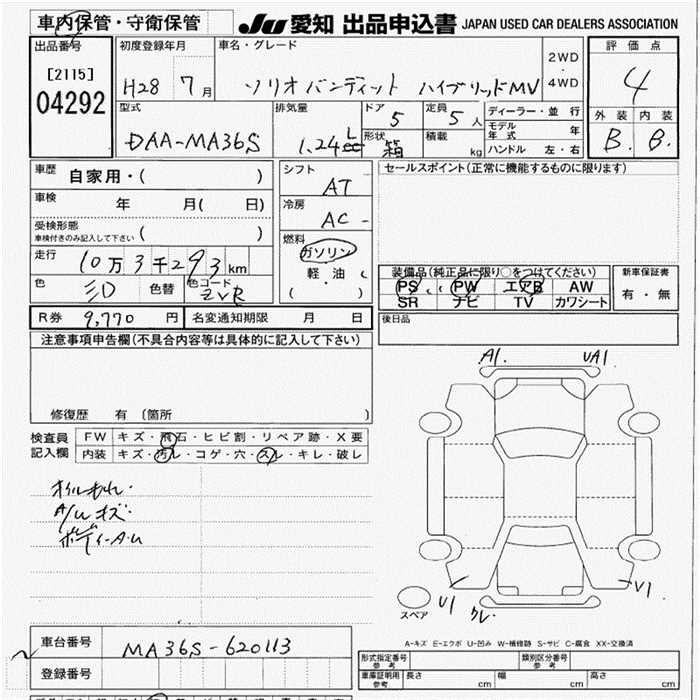 車内保管・守衛保管
JU 愛知 出品申込書 JAPAN USED CAR DEALERS ASSOCIATION
出品番号
[2115]
04292
初度登録年月
H28 7月
車名・グレード
ソリオバンディット ハイブリッドMV
2WD
・
4WD
評価点
4
外装 内装
B. B.
型式
DAA-MA36S
排気量
1.24L
ドア 5
形状 箱
定員 5人
積載 kg
ディーラー・並行
モデル年式 年
ハンドル 左・右
車歴 自家用・( )
車検 年 月( 日)
受検形態
車検付きのみ記入して下さい ( )
走行 10万3千293km
色 色替 色コード ZVR
シフト
AT
冷房
AC
燃料
ガソリン
軽油
・
( )
セールスポイント(正常に機能するものに限ります)
装備品(純正品に限り○をつけてください)
PS PW エアB AW
SR ナビ TV カワシート
新車保証書
有・無
後日品
R券 9,770円 名変通知期限 月 日
注意事項申告欄(不具合内容等は具体的に記入して下さい)
修復歴 有 〔箇所 〕
検査員記入欄
FW キズ・飛石・ヒビ割・リペア跡・X要
内装 キズ・汚レ・コゲ・穴・スレ・キレ・破レ
オイルもれ・
A/Uキズ
ボディーA・U
A1. UA1
U1 クレ V1
スペア
A-キズ E-エクボ U-凹み W-補修跡 S-サビ C-腐食 XX-交換済
車台番号 MA36S-620113
登録番号
形式指定番号参考 類別区分番号参考
車庫証明用参考 長さ cm 幅 cm 高さ cm